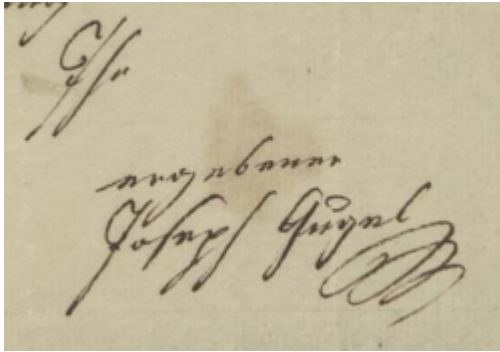 Ihr
ergebener
Joseph Gugel